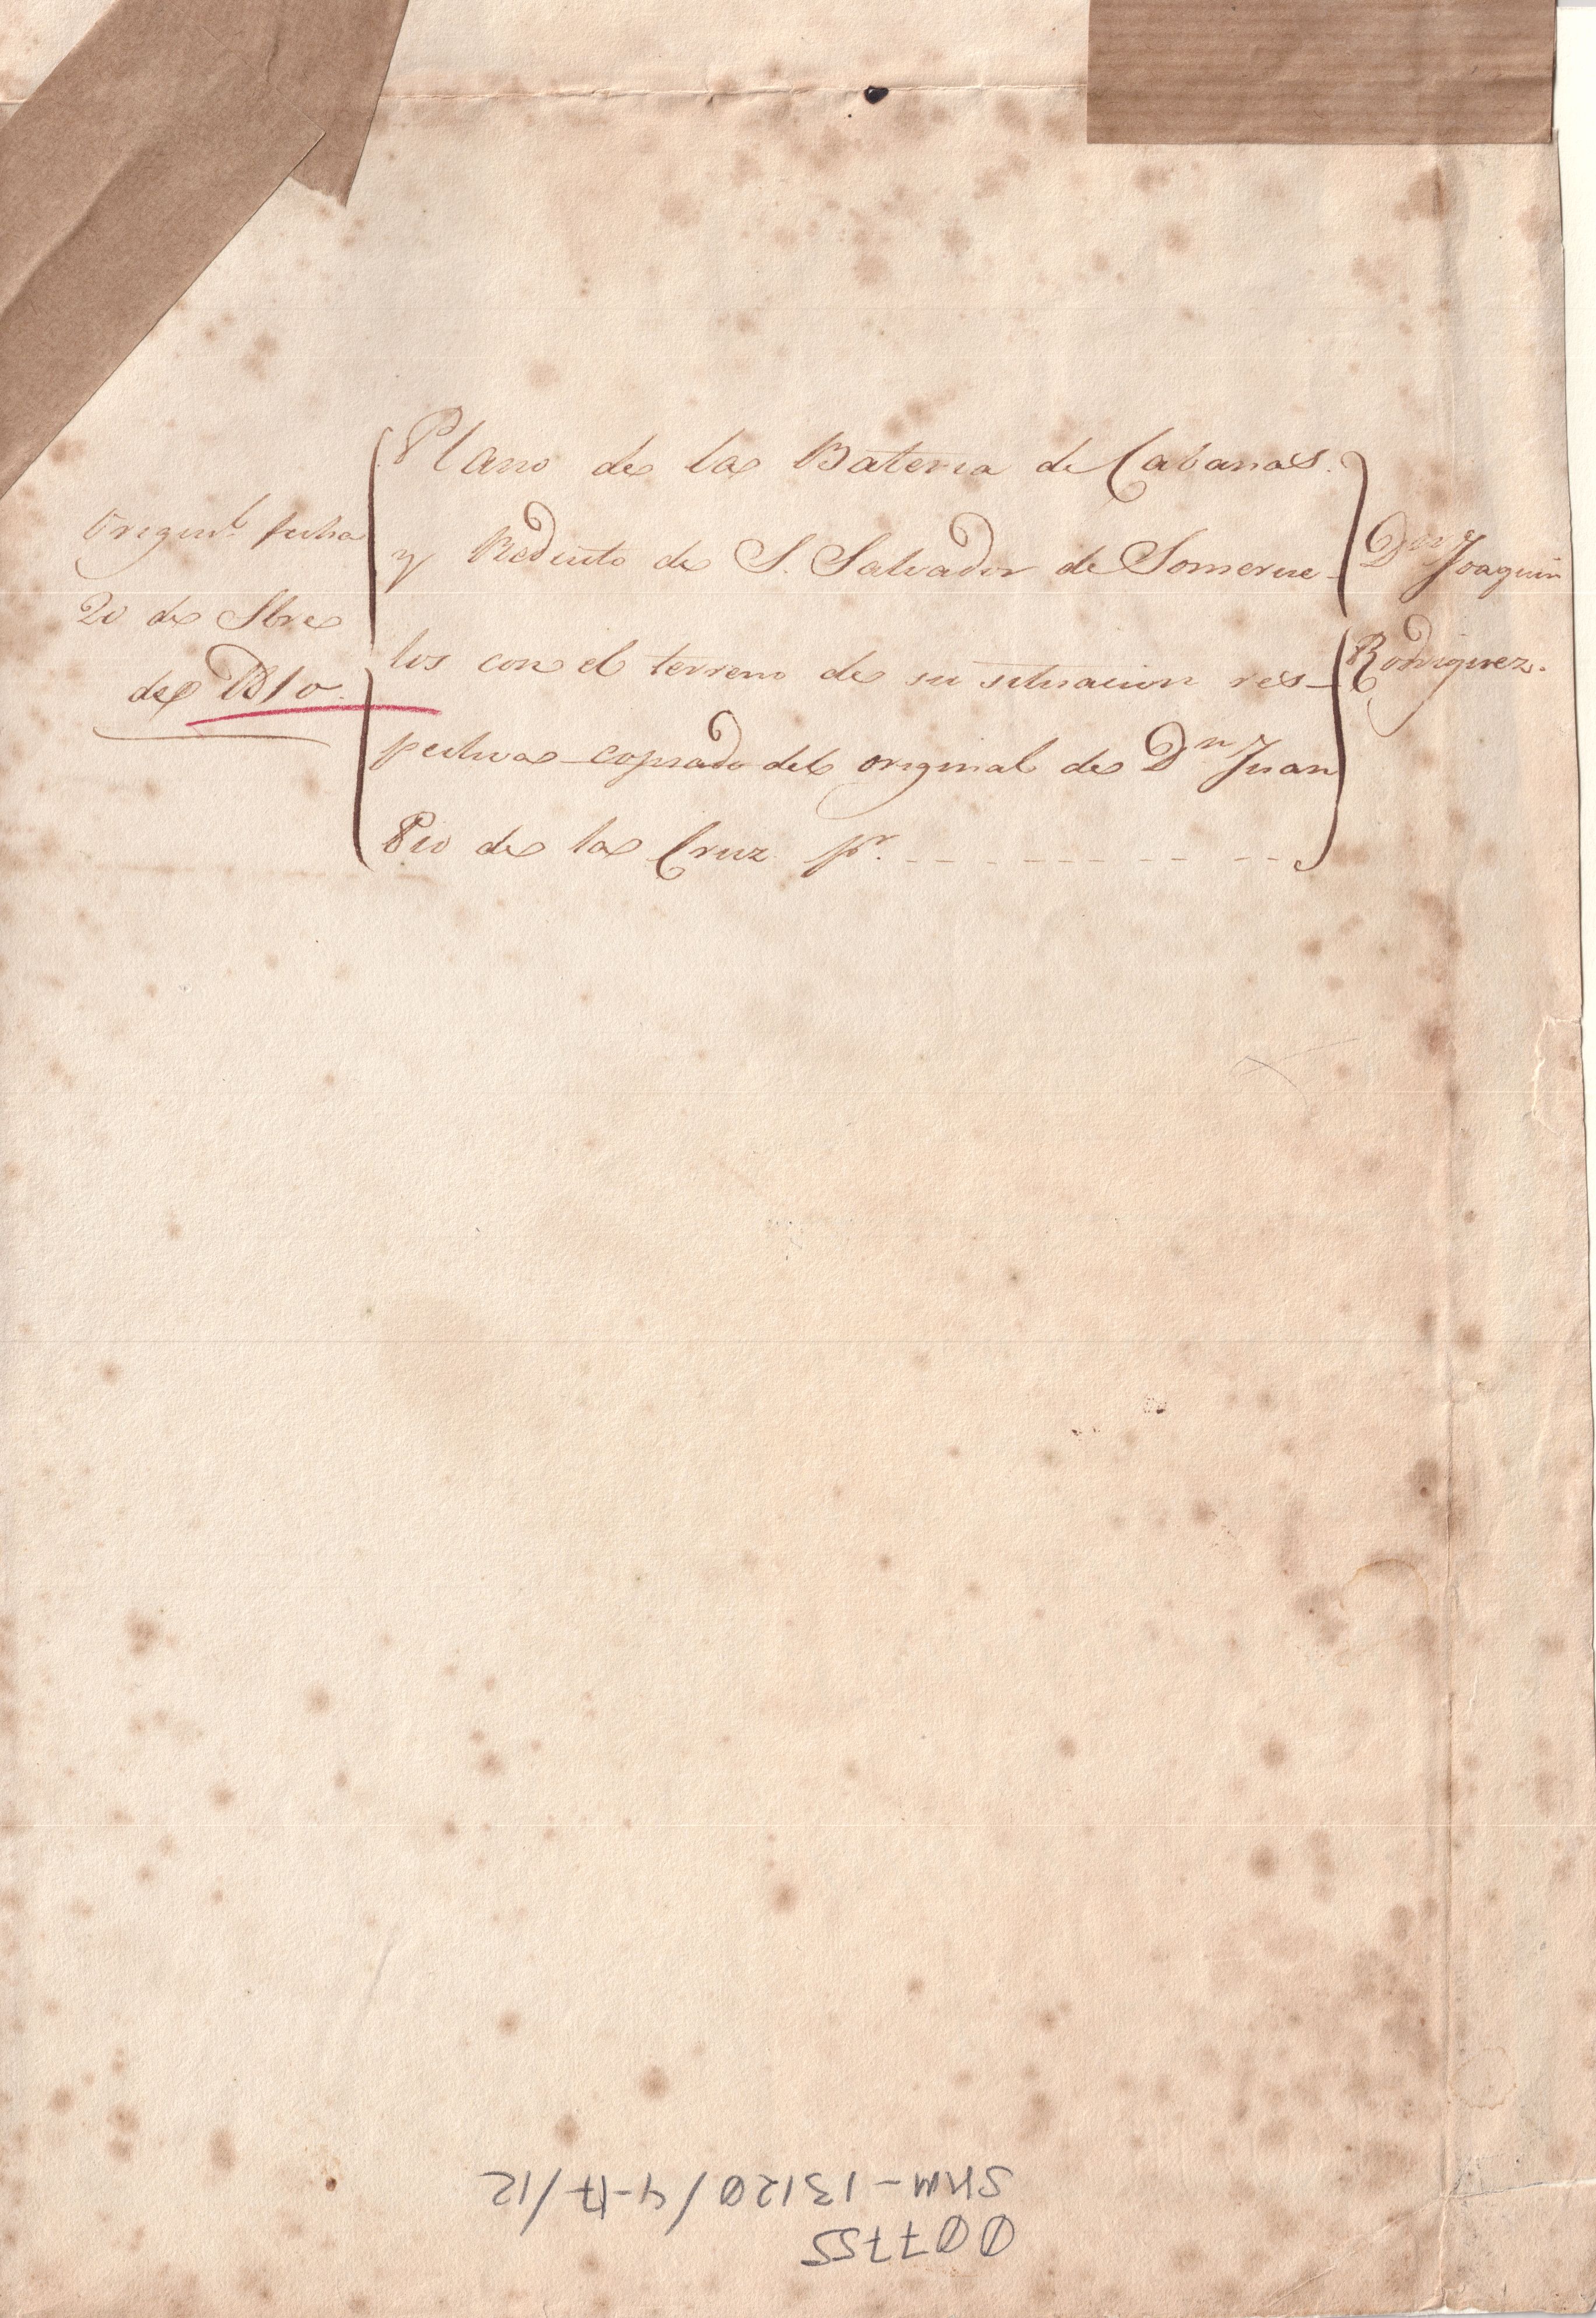 Origin.l fecha
20 de Sbre
de 1810
Plano de la Bateria de Cabanas
y Reducto de S. Salvador de Somerue-
los con el terreno de su situacion res-
pectiva copiado del original de Dn Juan
Pio de la Cruz pr.
Don Joaquin
Rodriguez.
007755
SHM-13120/4-17/12